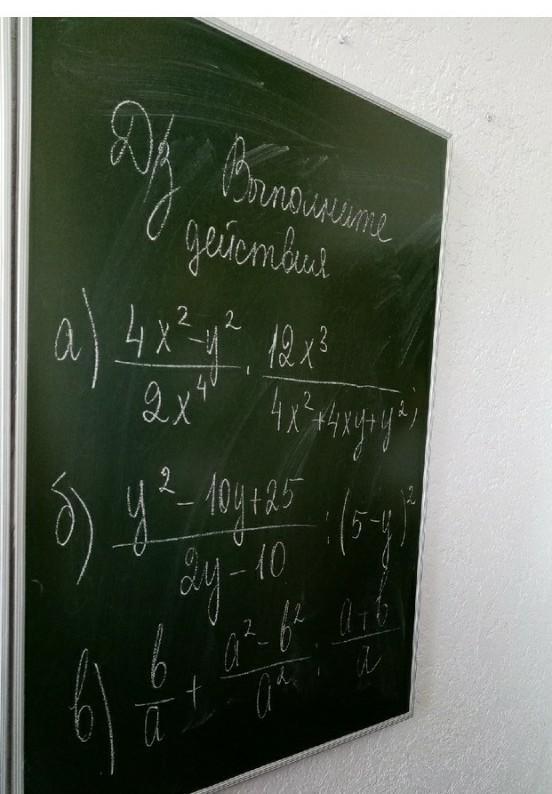 Дз Выполните
действия
а) (4x²-y²)/(2x⁴) · (12x³)/(4x²+4xy+y²);
б) (y²-10y+25)/(2y-10) : (5-y)²
в) b/a + (a²-b²)/a² : (a+b)/a